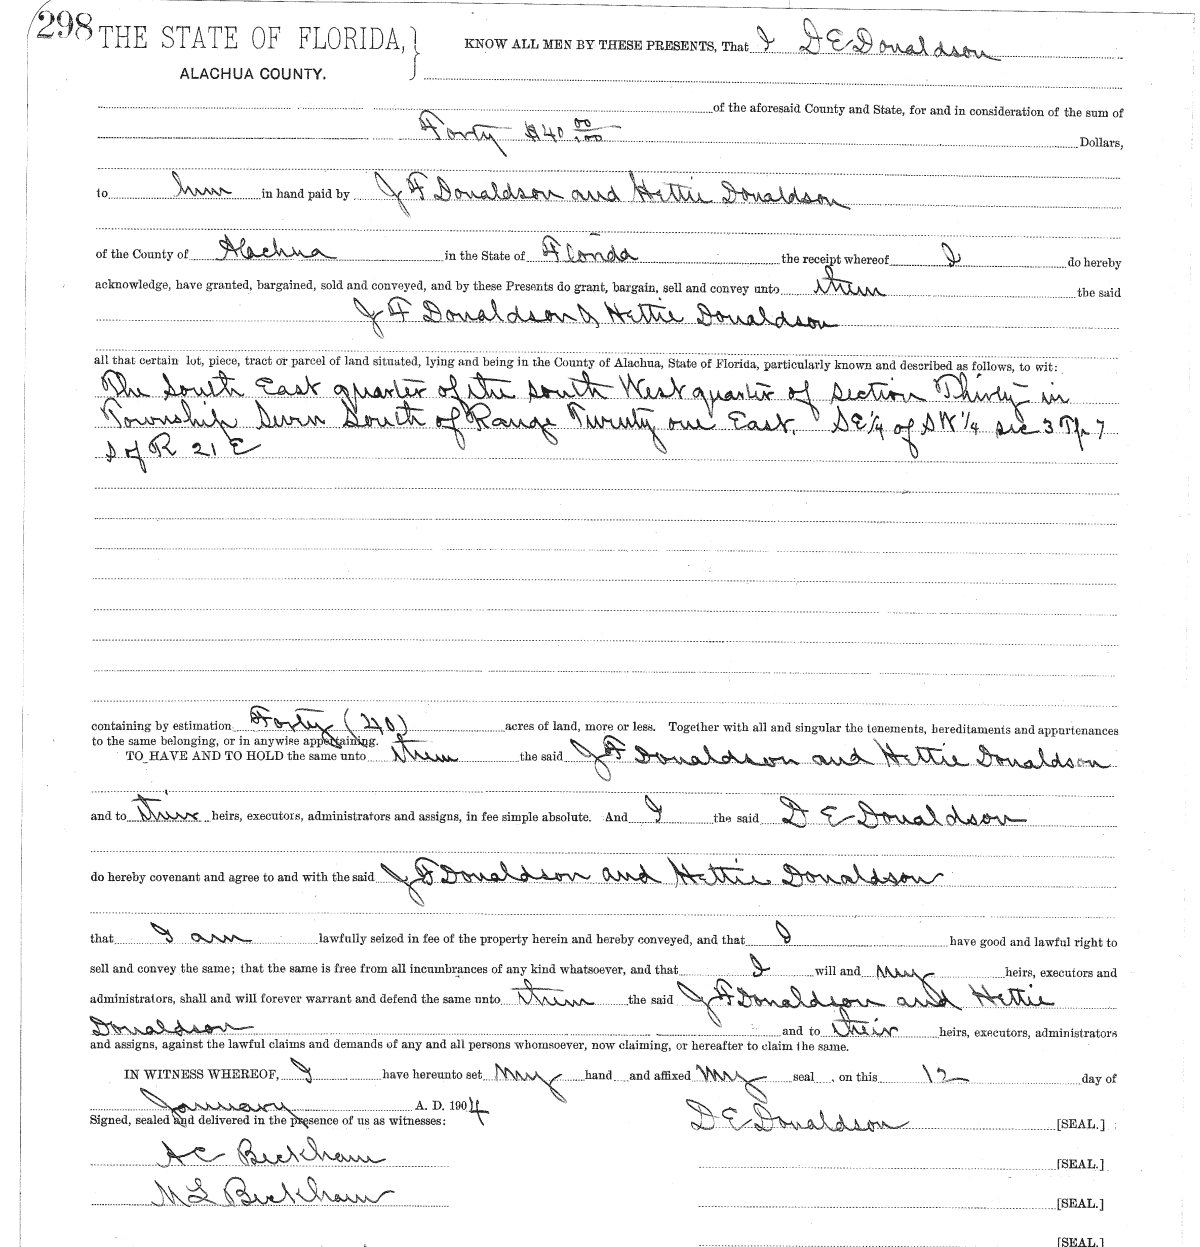 298 THE STATE OF FLORIDA, } KNOW ALL MEN BY THESE PRESENTS, That I D E Donaldson
ALACHUA COUNTY.
of the aforesaid County and State, for and in consideration of the sum of
Forty $40 00/100 Dollars,
to him in hand paid by J F Donaldson and Hettie Donaldson
of the County of Alachua in the State of Florida the receipt whereof I do hereby
acknowledge, have granted, bargained, sold and conveyed, and by these Presents do grant, bargain, sell and convey unto them the said
J F Donaldson & Hettie Donaldson
all that certain lot, piece, tract or parcel of land situated, lying and being in the County of Alachua, State of Florida, particularly known and described as follows, to wit:
The South East quarter of the South West quarter of section Thirty in
Township Seven South of Range Twenty one East. SE 1/4 of SW 1/4 sec 3 Tp 7
S of R 21 E
containing by estimation Forty (40) acres of land, more or less. Together with all and singular the tenements, hereditaments and appurtenances
to the same belonging, or in anywise appertaining.
TO HAVE AND TO HOLD the same unto them the said J F Donaldson and Hettie Donaldson
and to their heirs, executors, administrators and assigns, in fee simple absolute. And I the said D E Donaldson
do hereby covenant and agree to and with the said J F Donaldson and Hettie Donaldson
that I am lawfully seized in fee of the property herein and hereby conveyed, and that I have good and lawful right to
sell and convey the same; that the same is free from all incumbrances of any kind whatsoever, and that I will and my heirs, executors and
administrators, shall and will forever warrant and defend the same unto them the said J F Donaldson and Hettie
Donaldson and to their heirs, executors, administrators
and assigns, against the lawful claims and demands of any and all persons whomsoever, now claiming, or hereafter to claim the same.
IN WITNESS WHEREOF, I have hereunto set my hand and affixed my seal , on this 12 day of
January A. D. 1904
Signed, sealed and delivered in the presence of us as witnesses: D E Donaldson [SEAL.]
A C Beckham [SEAL.]
M L Beckham [SEAL.]
[SEAL.]